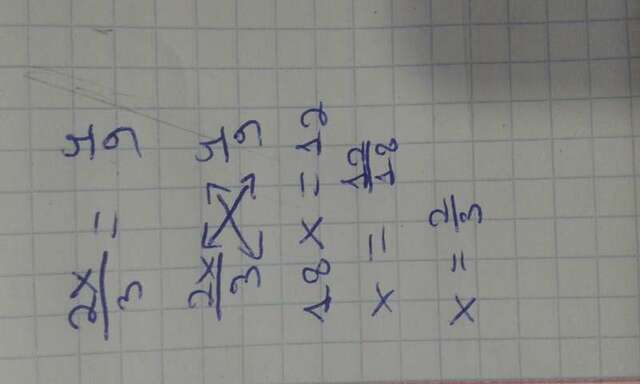 2x/3 = 4/9
2x/3 4/9
18x = 12
x = 12/18
x = 2/3